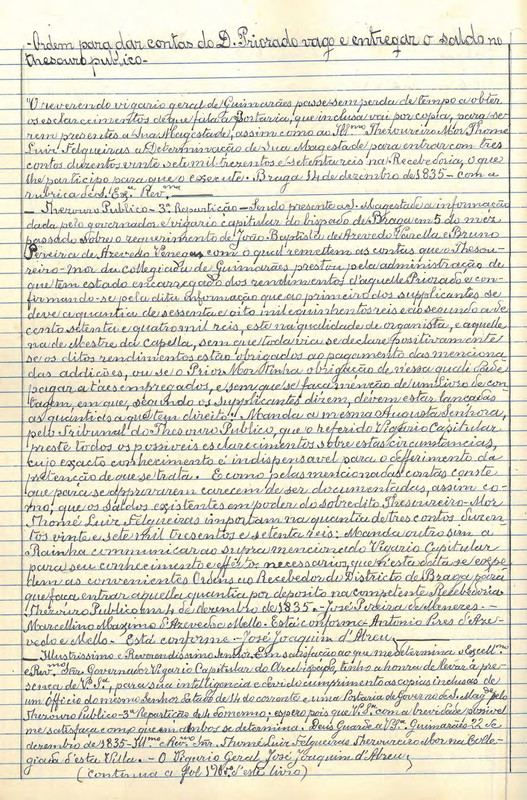 -Ordem para dar contas do D. Priorado vago e entregar o saldo no
thesouro publico-
"O reverendo vigario geral de Guimarães passe sem perda de tempo a obter
os esclarecimentos de que fala a Portaria, que inclusa vai por copia, para se-
rem presentes a Sua Magestade, assim como ao Illmo Thezoureiro Mor Thomé
Luiz Felgueiras a Determinação de Sua Magestade para entrar com tres
contos duzentos vinte sete mil trezentos e setenta reis na Recebedoria, o que
lhe participo para que o execute. Braga 14 de dezembro de 1835 - com a
rubrica de S. Exa. Revma
- Thezouro Publico - 3ª Repartição - Sendo presente a S. Magestade a informação
dada pelo governador e vigario capitular do bispado de Braga em 5 do mez
passado sobre o requerimento de João Baptista de Azevedo Varella e Bruno
Pereira de Azevedo Venegas com o qual remettem as contas que o Thesou-
reiro-mor da Collegiada de Guimarães prestou pela administração de
que tem estado encarregado dos rendimentos d'aquelle Priorado e con-
firmando-se pela dita informação que ao primeiro dos supplicantes se
deve a quantia de sessenta e oito mil e quinhentos reis e ao segundo a de
cento setenta e quatro mil reis, este na qualidade de organista, e aquelle
na de Mestre da Capella, sem que todavia se declare positivamente
se os ditos rendimentos estão obrigados ao pagamento das menciona
das addicões, ou se o Prior Mor tinha obrigação de nessa qualidade
pagar a taes empregados, e sem que se faça menção de um Livro de con-
tagem, em que, segundo os supplicantes dizem, devem estar lançadas
as quantias a que tem direito: Manda a mesma Augusta Senhora,
pelo Tribunal do Thesouro Publico, que o referido Vigario Capitular
preste todos os possiveis esclarecimentos sobre estas circumstancias,
cujo exacto conhecimento é indispensavel para o defferimento da
pretenção de que se trata. E como pelas mencionadas contas conste
que para se approvarem carecem de ser documentadas, assim co-
mo, que os saldos existentes em poder do sobredito Thesoureiro-Mor
Thomé Luiz Felgueiras importam na quantia de tres contos duzen-
tos vinte e sete mil tresentos e setenta reis; Manda outro sim a
Rainha communicar ao supra mencionado Vigario Capitular
para seu conhecimento e effeitos necessarios, que n'esta data se expe-
dem as convenientes Ordens ao Recebedor do Districto de Braga para
que faça entrar aquella quantia por deposito na competente Recebedoria.
Thezouro Publico em 4 de dezembro de 1835. - José Pereira de Menezes. -
Marcellino Maximo d'Azevedo e Mello. - Está conforme - Antonio Pires d'Aze-
vedo e Mello. - Está conforme - José Joaquim d'Abreu
- Illustrissimo e Reverendissimo Senhor. Em satisfação ao que me determina o Excellmo
e Revmo Snr. Governador Vigario Capitular do Arcebispado, tenho a honra de levar á pre-
sença de V. Sa, para sua intelligencia e devido cumprimento as copias inclusas de
um Officio do mesmo Senhor datado de 14 do corrente e uma Portaria do Governo de S. Mage pelo
Thezouro Publico - 3ª Repartição de 4 do mesmo. espero pois que V. Sa com a brevidade possivel
me satisfaça como que em ambos se determina. Deus Guarde a V. Sa. Guimarães 22 de
dezembro de 1835 - Illmo e Revmo Snr. Thomé Luiz Felgueiras Thezoureiro Mor na Colle-
giada d'esta Villa. - O Vigario Geral José Joaquim d'Abreu
(Continua a fol d'este livro)